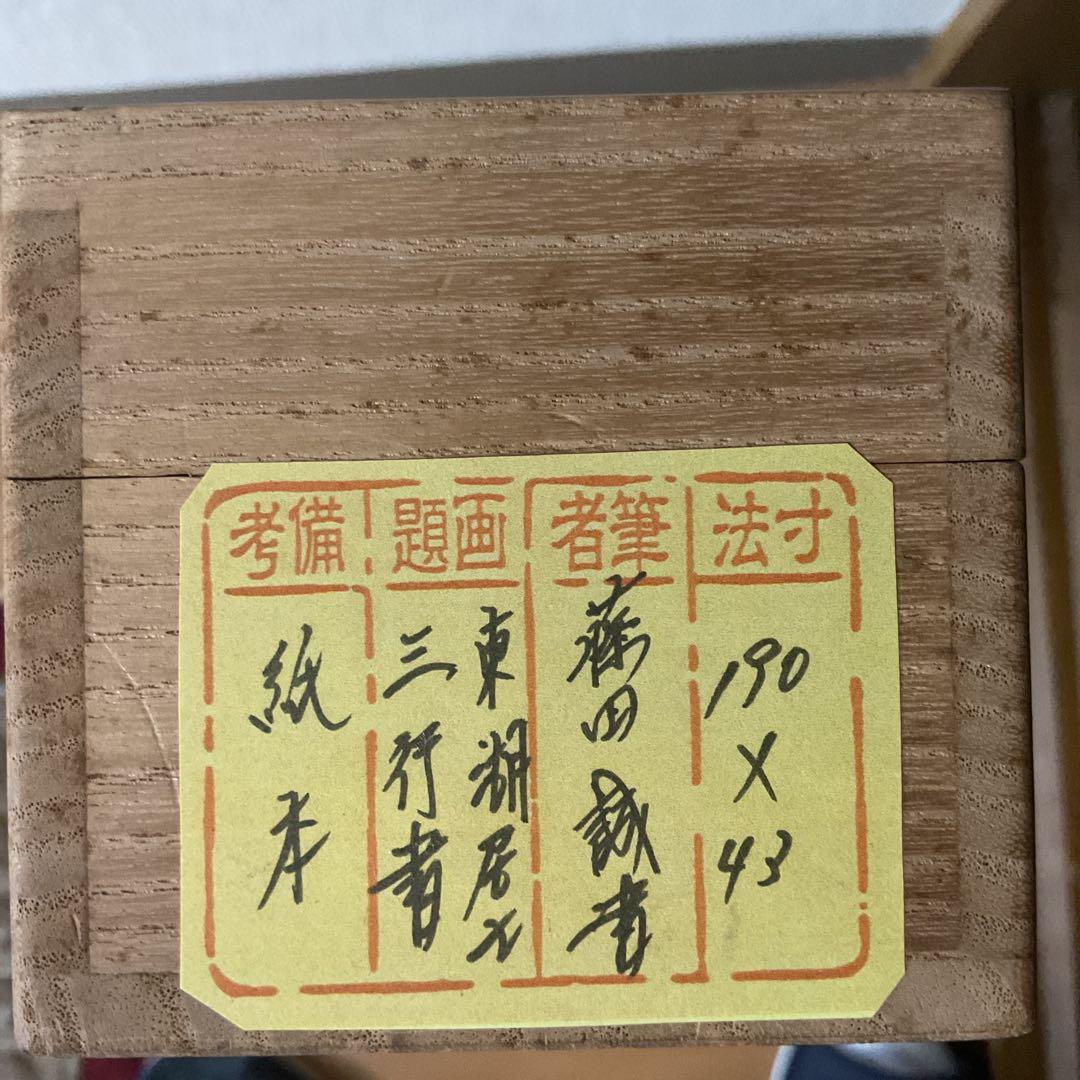 寸法
190
X
43
筆者
藤田誠
画題
東湖居
三行書
備考
紙本